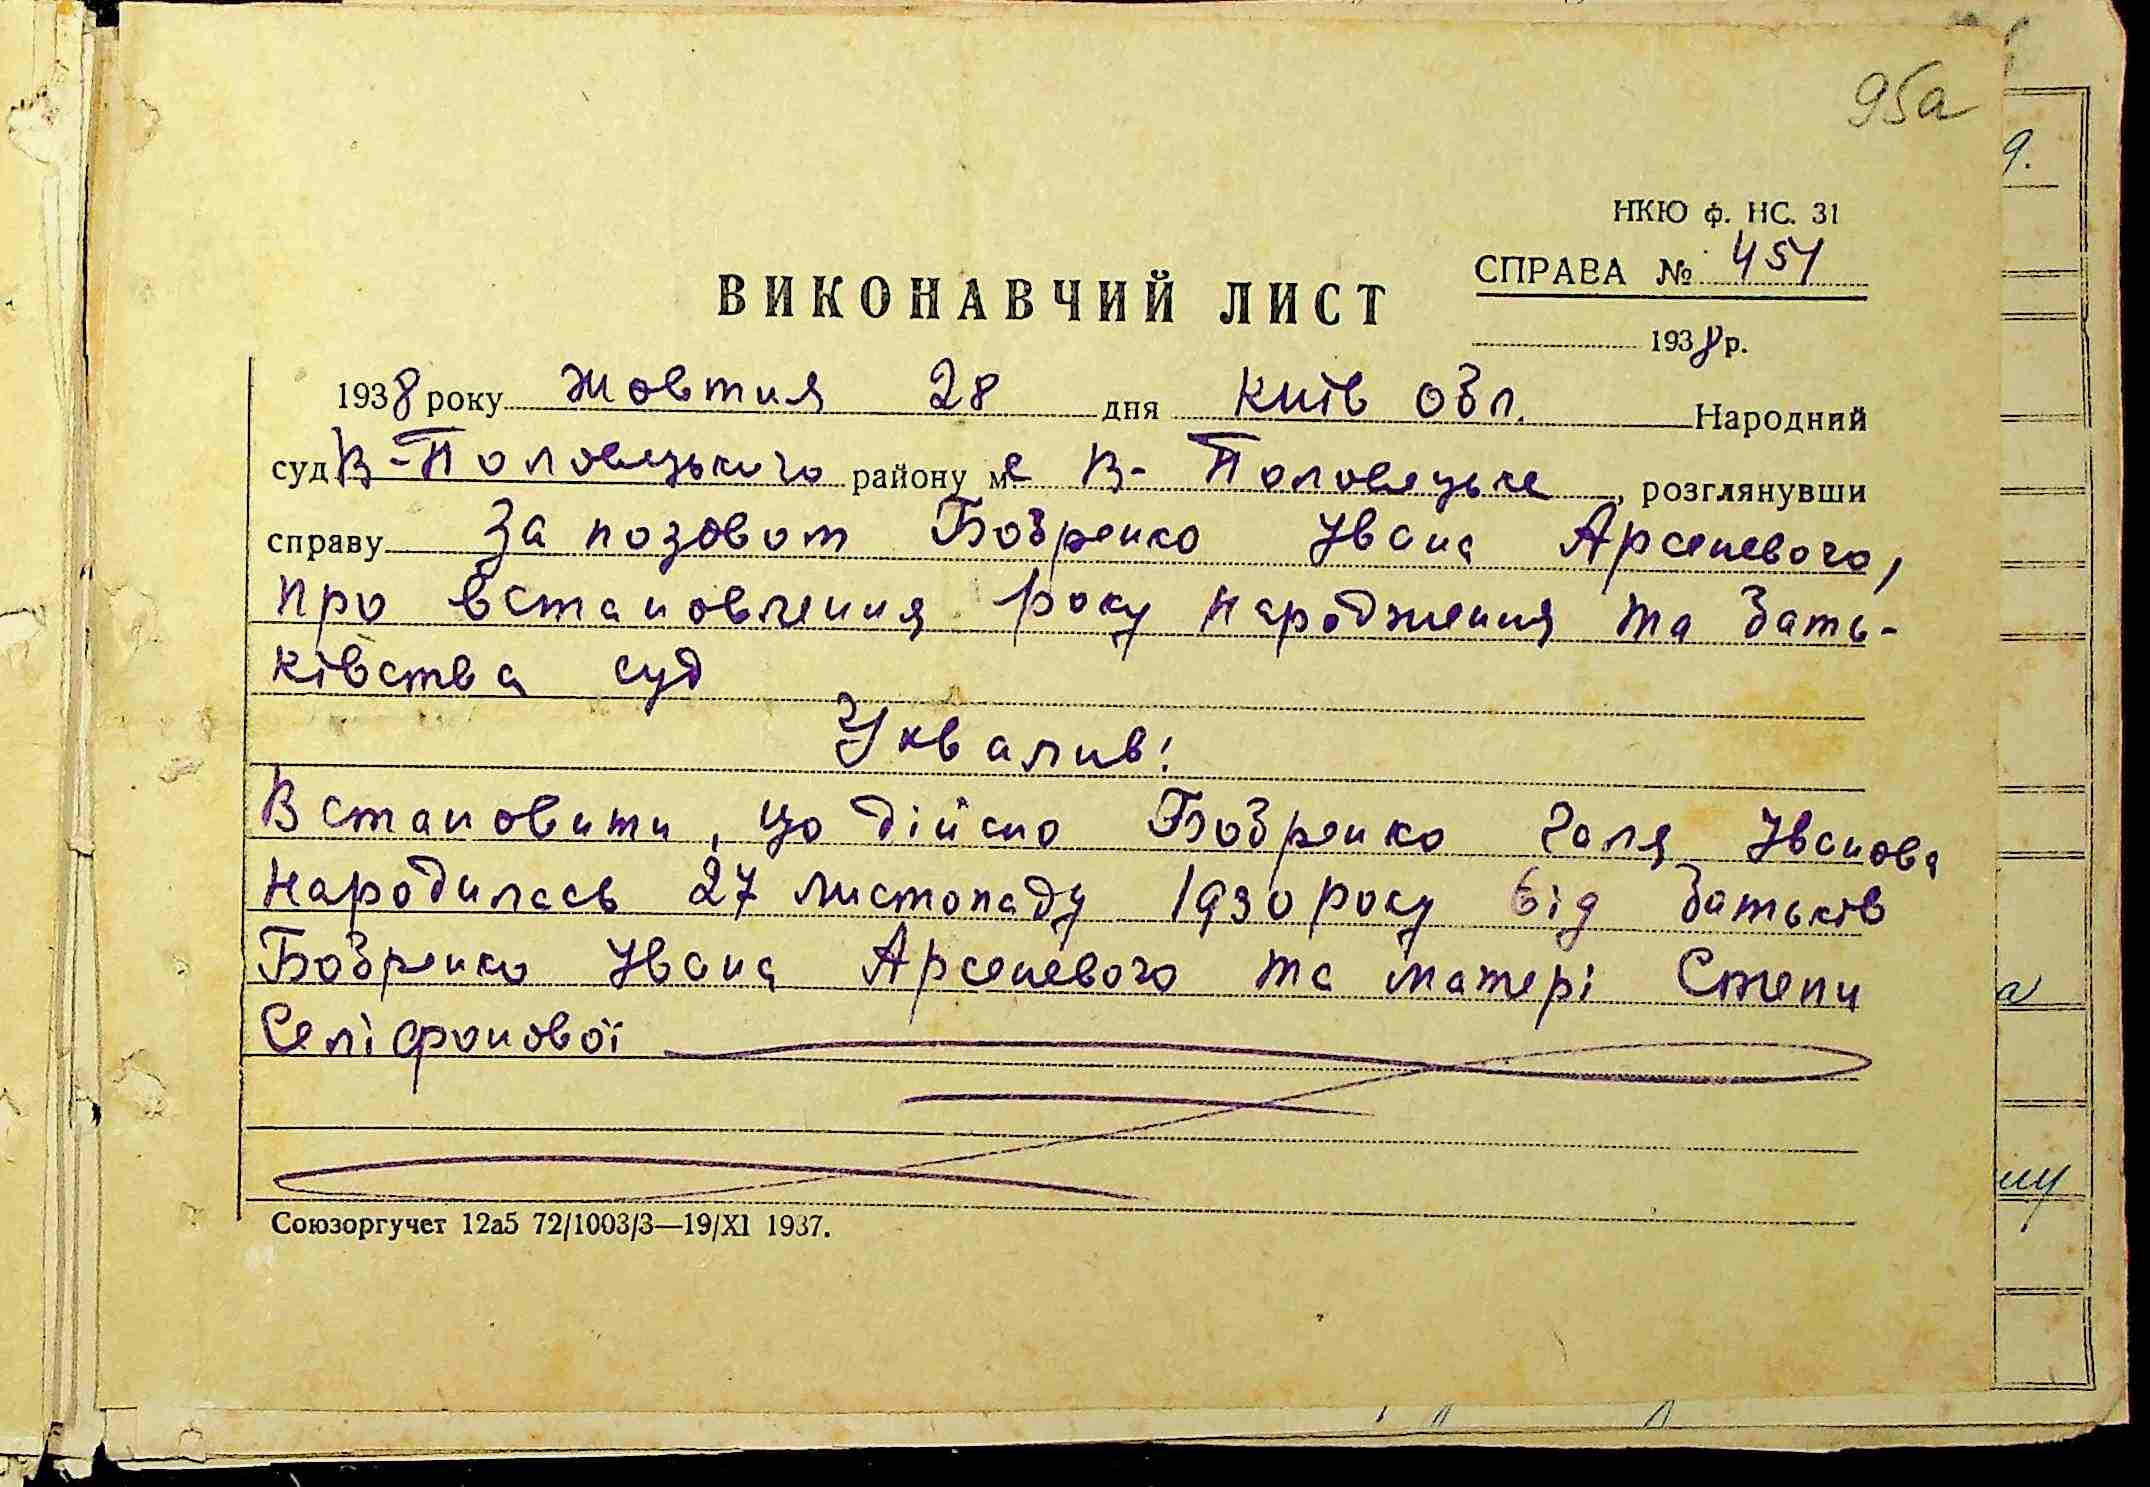 95а
НКЮ ф. НС. 31
СПРАВА № 451
ВИКОНАВЧИЙ ЛИСТ
1938 р.
1938 року жовтня 28 дня Київ обл. Народний
суд В-Половецького району с В-Половецьке, розглянувши
справу За позовом Бобренко Івана Арсеневого,
про встановлення року народження та бать-
ківства суд
Ухвалив:
Встановити, що дійсно Бобренко Галя Іванова
народилась 27 листопаду 1930 року від батьків
Бобренко Івана Арсеневого та матері Степи
Селіфонової
Союзоргучет 12а5 72/1003/3—19/XI 1937.